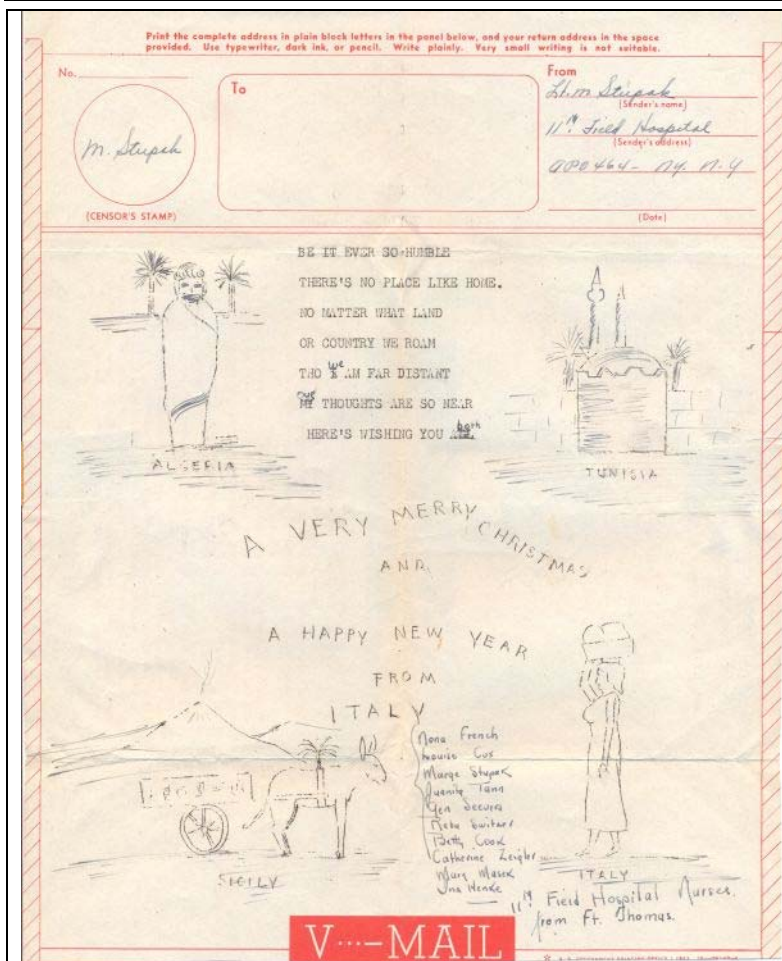 Print the complete address in plain block letters in the panel below, and your return address in the space
provided. Use typewriter, dark ink, or pencil. Write plainly. Very small writing is not suitable.
No.
To
From
Lt. M Stupak
(Sender's name)
11th Field Hospital
(Sender's address)
APO 464 - NY. N.Y
(Date)
M. Stupak
(CENSOR'S STAMP)
BE IT EVER SO HUMBLE
THERE'S NO PLACE LIKE HOME.
NO MATTER WHAT LAND
OR COUNTRY WE ROAM
THO we AM FAR DISTANT
our THOUGHTS ARE SO NEAR
HERE'S WISHING YOU both
ALGERIA
TUNISIA
A VERY MERRY CHRISTMAS
AND
A HAPPY NEW YEAR
FROM
ITALY
Nona French
Louise Cox
Marge Stupak
Juanita Tann
Gen Secura
Reba Switzer
Betty Cook
Catherine Zeigler
Mary Masek
Ina Henke
SICILY
ITALY
11th Field Hospital Nurses.
from Ft. Thomas.
V···—MAIL